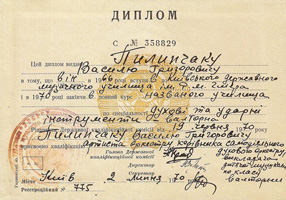 ДИПЛОМ
С № 358829
Пилипчаку
Цей диплом видано
Василю Григоровичу
в тому, що він Київського державного
музичного училища ім. Р. М. Глієра
і в 1970 році закінчив названого училища
духові та ударні
інструменти
Рішенням Державної кваліфікаційної комісії від 19 червня 1970 р.
Пилипчаку Василю Григоровичу
присвоєна кваліфікація артиста оркестру, керівника самодіяльного
духового оркестру,
викладача
по класу
валторни
Голова Державної
кваліфікаційної комісії
Директор
Секретар
Місто Київ 2 липня 1970 р.
Реєстраційний № 775